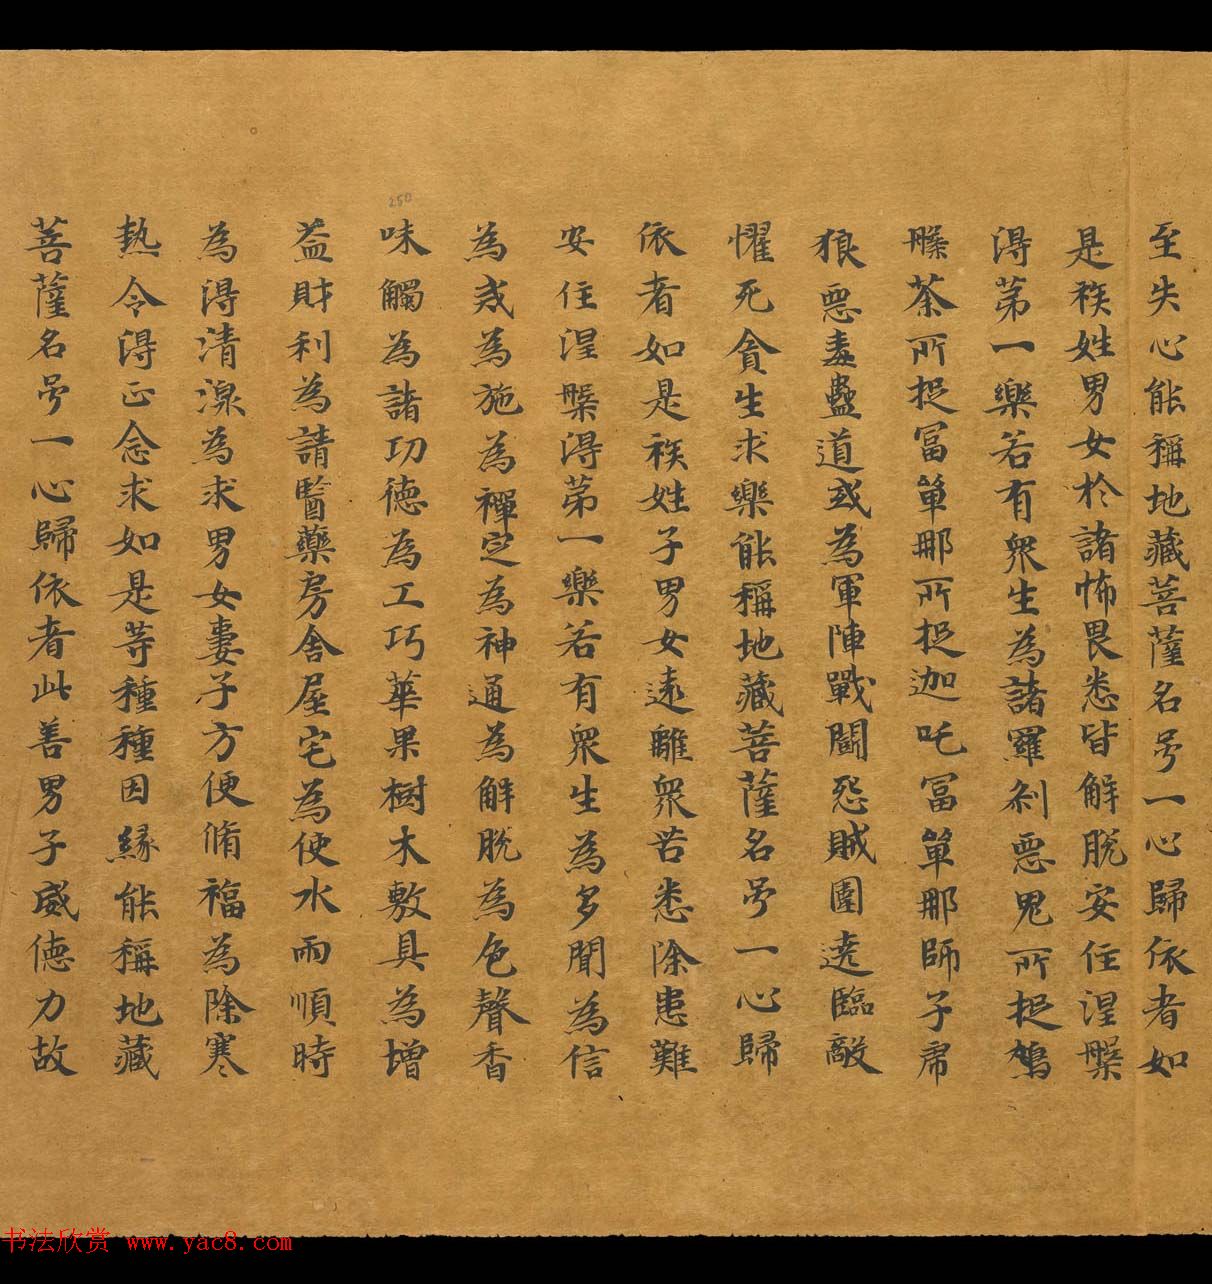 至失心能稱地藏菩薩名号一心歸依者如
是族姓男女於諸怖畏悉皆解脫安住涅槃
得第一樂若有衆生為諸羅刹惡鬼所捉鳩
槃荼所捉冨單那所捉迦吒冨單那師子虎
狼惡毒蠱道或為軍陣戰鬪怨賊圍遶臨敵
懼死貪生求樂能稱地藏菩薩名号一心歸
依者如是族姓子男女遠離衆苦悉除患難
安住涅槃得第一樂若有衆生為多聞為信
為戒為施為禪定為神通為解脫為色聲香
味觸為諸功德為工巧華果樹木敷具為增
益財利為請醫藥房舍屋宅為使水雨順時
為得清涼為求男女妻子方便脩福為除寒
熱令得正念求如是等種種因緣能稱地藏
菩薩名号一心歸依者此善男子威德力故
250
书法欣赏 www.yac8.com